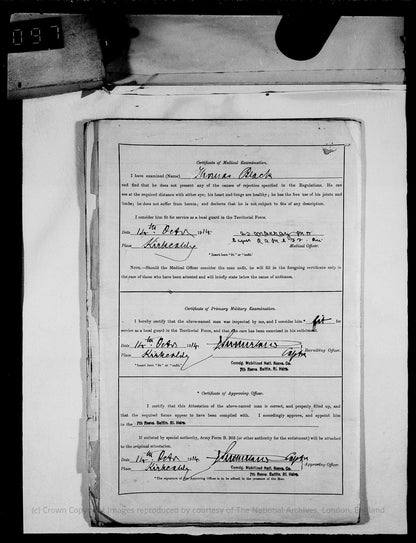 097
Certificate of Medical Examination.
I have examined (Name) Thomas Black
and find that he does not present any of the causes of rejection specified in the Regulations. He can
see at the required distance with either eye; his heart and lungs are healthy; he has the free use of his joints and
limbs; he does not suffer from hernia; and declares that he is not subject to fits of any description.
I consider him fit for service as a local guard in the Territorial Force.
Date 14th Octr 1914.
Place Kirkcaldy Medical Officer.
*Insert here "fit" or "unfit."
NOTE.—Should the Medical Officer consider the man unfit, he will fill in the foregoing certificate only in
the case of those who have been attested and will briefly state below the cause of unfitness.
Certificate of Primary Military Examination.
I hereby certify that the above-named man was inspected by me, and I consider him * fit for
service as a local guard in the Territorial Force, and that due care has been exercised in his enlistment.
Date 14th Octr 1914.
Place Kirkcaldy Capt Recruiting Officer.
*Insert here "fit" or "unfit."
Comdg. Mobilized Natl. Resve. Co.
7th Resve. Battn. Rl. Hdrs.
* Certificate of Approving Officer.
I certify that this Attestation of the above-named man is correct, and properly filled up, and
that the required forms appear to have been complied with. I accordingly approve, and appoint him
to the 7th Resve. Battn. Rl. Hdrs.
If enlisted by special authority, Army Form B. 203 (or other authority for the enlistment) will be attached to
the original attestation.
Date 14th Octr 1914 Capt
Place Kirkcaldy Approving Officer.
Comdg. Mobilized Natl. Resve. Co.
7th Resve. Battn. Rl. Hdrs.
*The signature of the Approving Officer to be affixed in the presence of the Man.
(c) Crown Copyright Images reproduced by courtesy of The National Archives, London, England